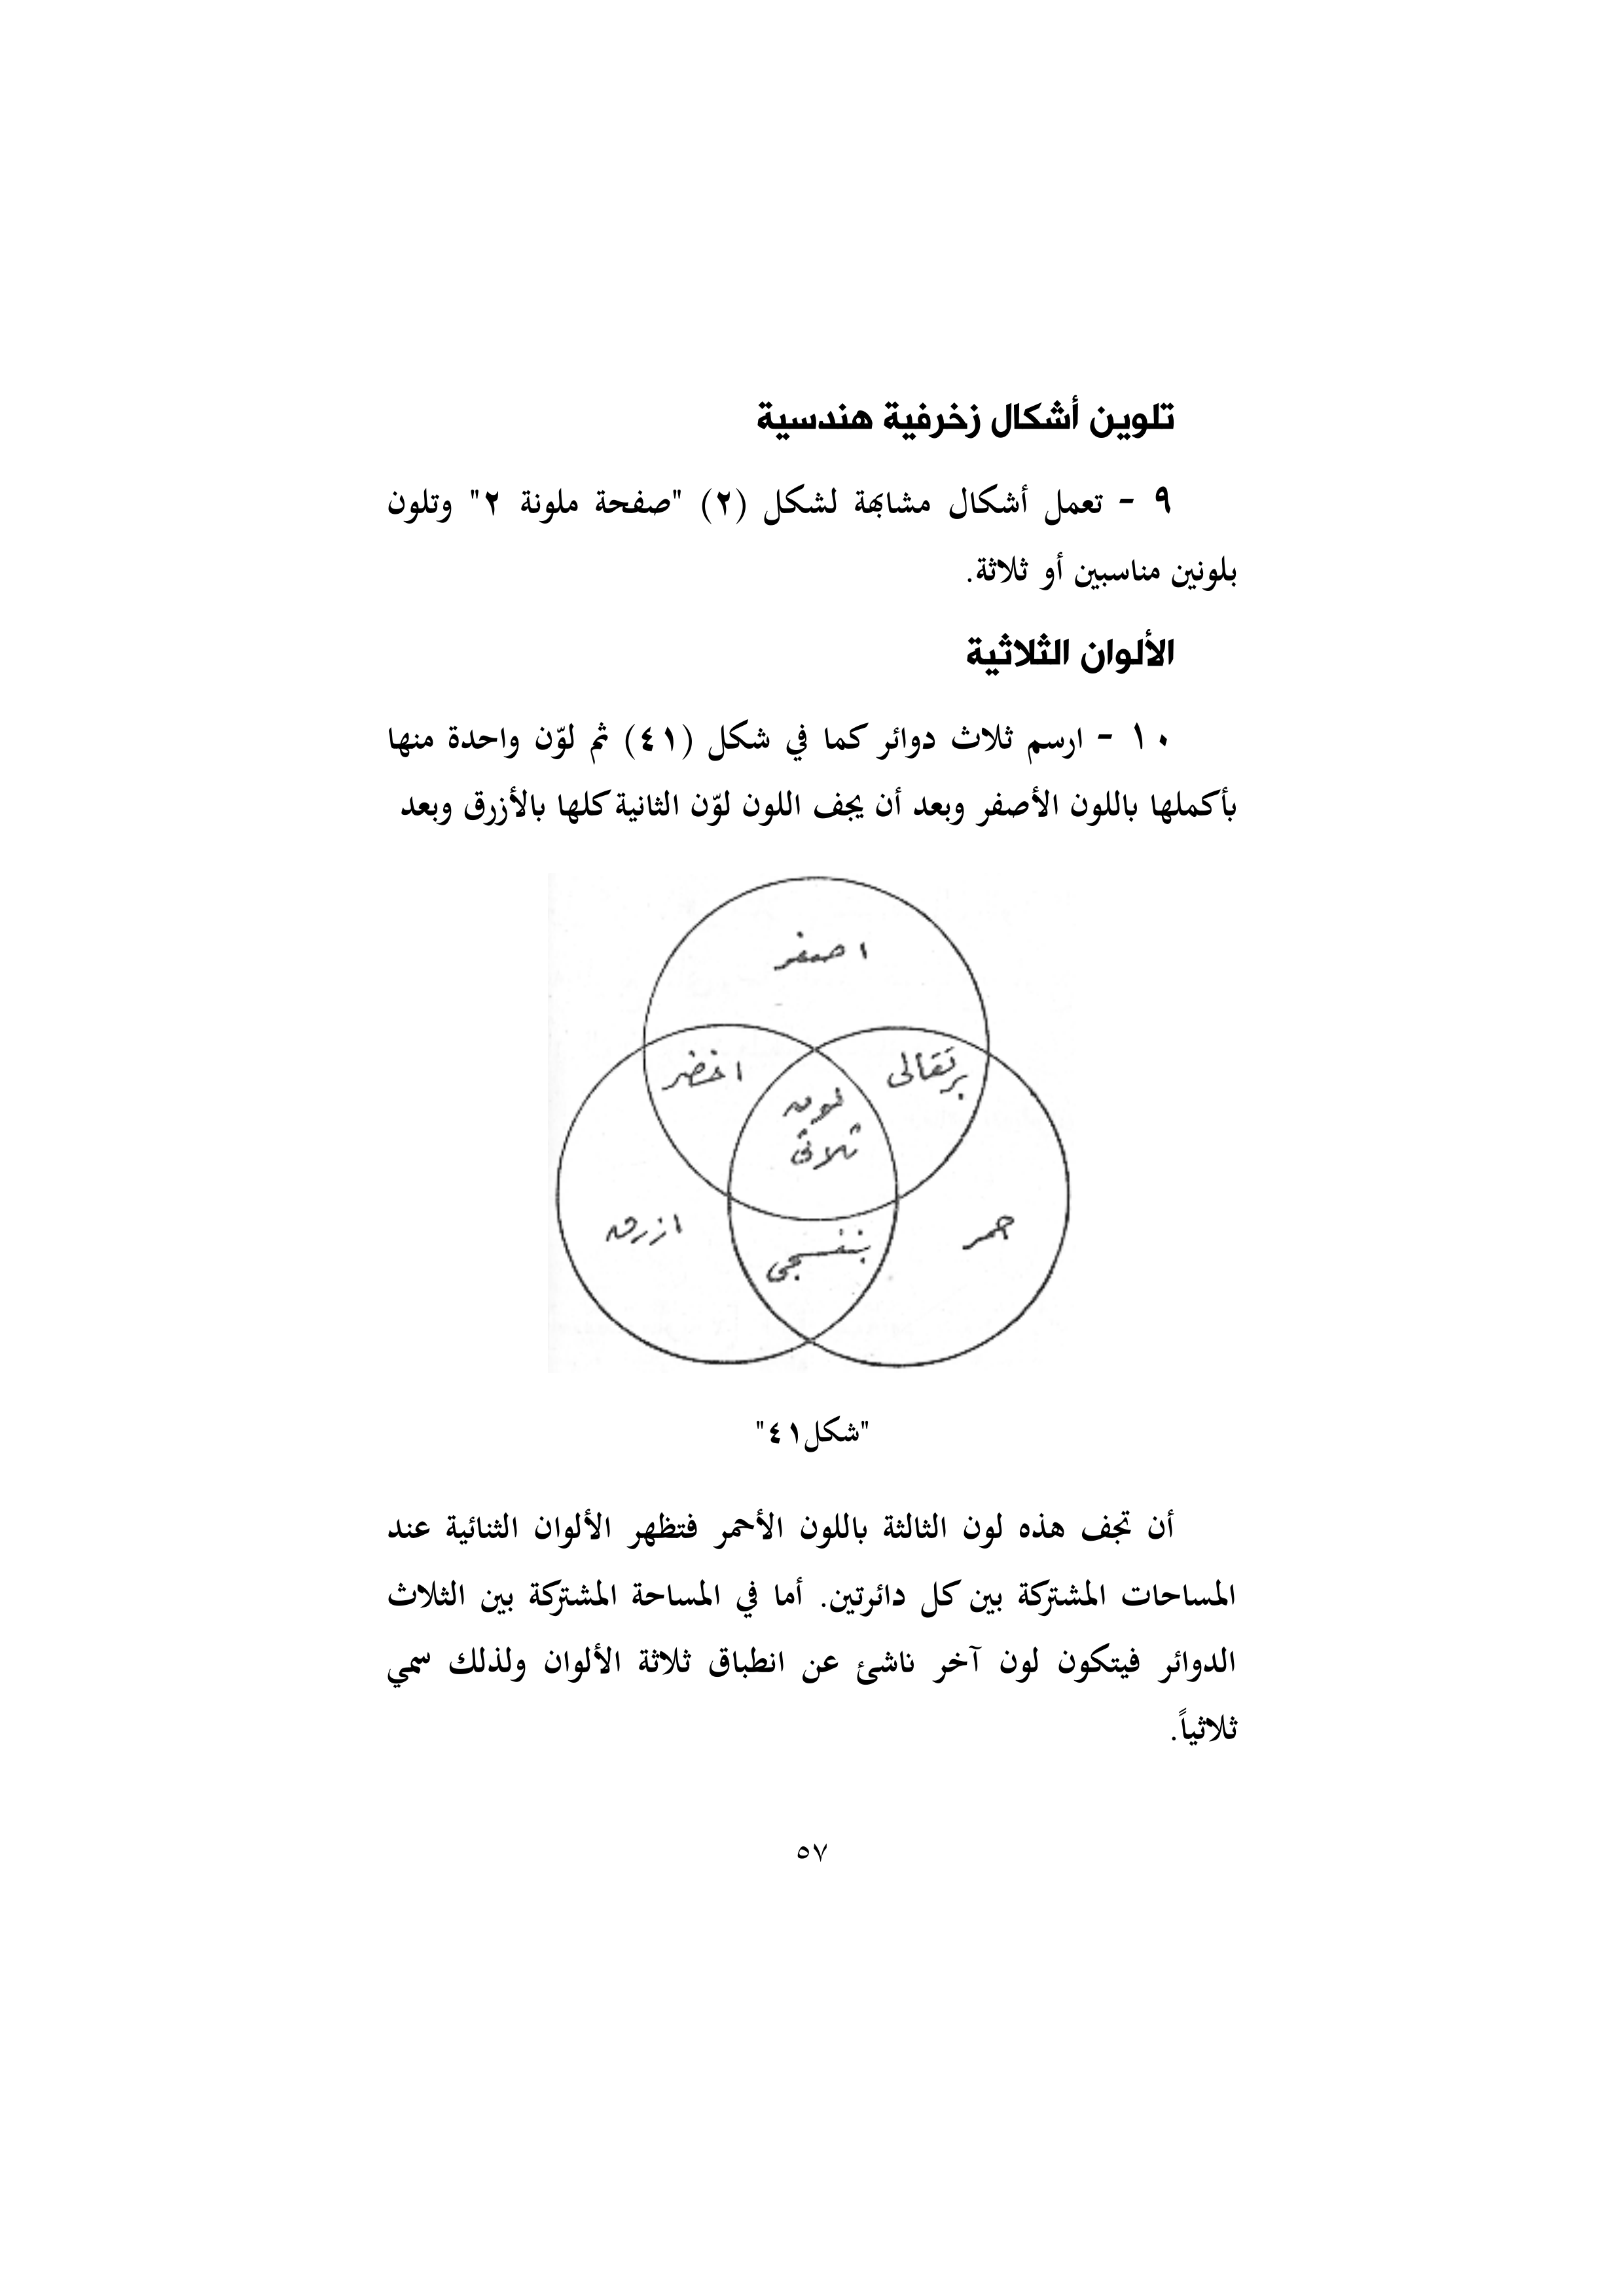 تلوين أشكال زخرفية هندسية
٩ - تعمل أشكال مشابهة لشكل (٢) "صفحة ملونة ٢" وتلون
بلونين مناسبين أو ثلاثة.
الألوان الثلاثية
١٠ - ارسم ثلاث دوائر كما في شكل (٤١) ثم لوّن واحدة منها
بأكملها باللون الأصفر وبعد أن يجف اللون لوّن الثانية كلها بالأزرق وبعد
اصفر
برتقالى
اخضر
لون
ثلاثى
حمر
ازرق
بنفسجى
"شكل٤١"
أن تجف هذه لون الثالثة باللون الأحمر فتظهر الألوان الثنائية عند
المساحات المشتركة بين كل دائرتين. أما في المساحة المشتركة بين الثلاث
الدوائر فيتكون لون آخر ناشئ عن انطباق ثلاثة الألوان ولذلك سمي
ثلاثياً.
٥٧